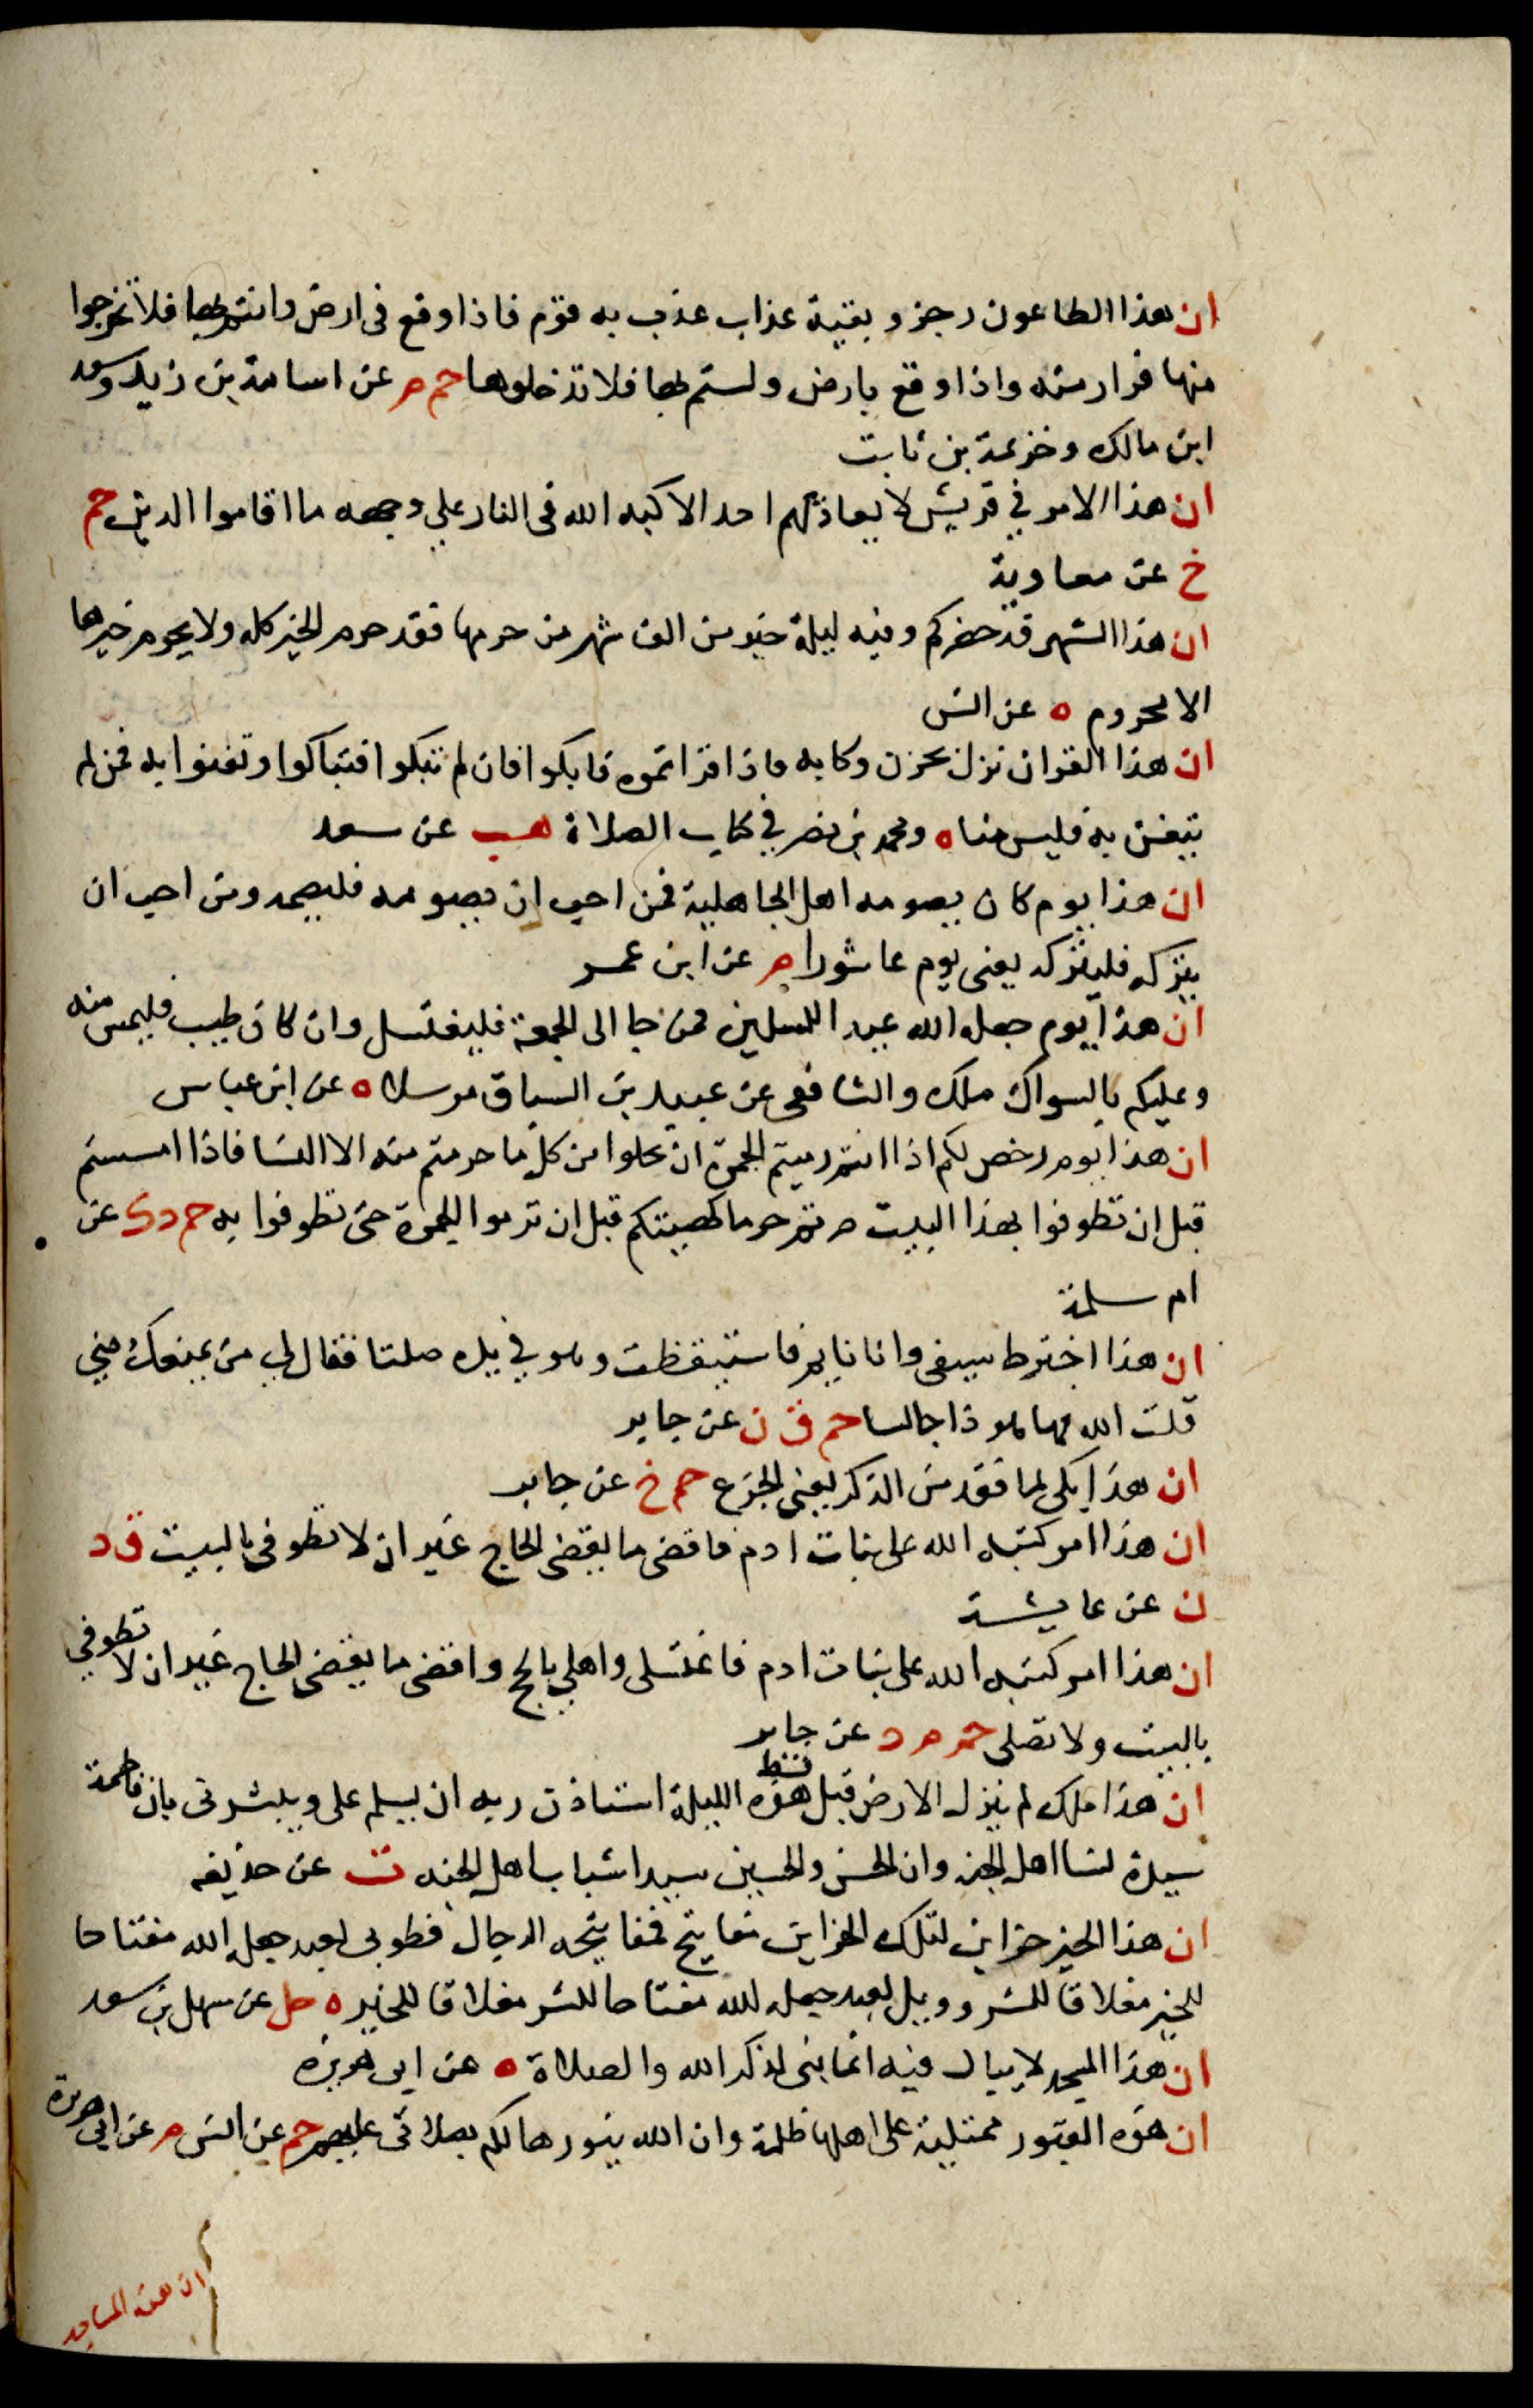 ان هذا الطاعون رجز وبقية عذاب عذب به قوم فاذا وقع فى ارض وانتم بها فلا تخرجوا
منها فرارا منه واذا وقع بارض ولستم بها فلا تدخلوها حم م عن اسامة بن زيد وسعد
ابن مالك وخزيمة بن ثابت
ان هذا الامر في قريش لا يعاديهم احد الا كبه الله فى النار علي وجهه ما اقاموا الدين حم
خ عن معاوية
ان هذا الشهر قد حضركم وفيه ليلة خير من الف شهر من حرمها فقد حرم الخير كله ولا يحرم خيرها
الا محروم ه عن انس
ان هذا القران نزل بحزن وكابه فاذا قراتموه فابكوا فان لم تبكوا فتباكوا وتغنوا به فمن لم
يتغن به فليس منا ه ومحمد بن نصر في كتاب الصلاة هب عن سعد
ان هذا يوم كان يصومه اهل الجاهلية فمن احب ان يصومه فليصمه ومن احب ان
يتركه فليتركه يعنى يوم عاشورا م عن ابن عمر
ان هذا يوم جعله الله عيدا للمسلمين فمن جا الى الجمعة فليغتسل وان كان طيب فليمس منه
وعليكم بالسواك ملك والشافعى عن عبيد بن السباق مرسلا ه عن ابن عباس
ان هذا يوم رخص لكم اذا انتم رميتم الجمرة ان تحلوا من كل ما حرمتم منه الا النسا فاذا امسيتم
قبل ان تطوفوا بهذا البيت صرتم حرما كهيئتكم قبل ان ترموا الجمرة حتى تطوفوا به حم د ك عن
ام سلمة
ان هذا اخترط سيفى وانا نايم فاستيقظت وهو في يده صلتا فقال لي من يمنعك مني
قلت الله فها هو ذا جالسا حم ق ن عن جابر
ان هذا بكى لما فقد من الذكر يعنى الجزع حم خ عن جابر
ان هذا امر كتبه الله على بنات ادم فاقضى ما يقضى الحاج غير ان لا تطوفى بالبيت ق د
ن عن عايشة
ان هذا امر كتبه الله على بنات ادم فاغتسلى واهلي بالحج واقضى ما يقضى الحاج غير ان لا تطوفي
بالبيت ولا تصلى حم م د عن جابر
ان هذا ملك لم ينزل الارض قط قبل هذه الليلة استاذن ربه ان يسلم على ويبشرنى بان فاطمة
سيدة نسا اهل الجنه وان الحسن والحسين سيدا شباب اهل الجنه ت عن حذيفه
ان هذا الخير خزاين لتلك الخزاين مفايتح فمفايتحه الرجال فطوبى لعبد جعله الله مفتاحا
للخير مغلاقا للشر وويل لعبد جعله الله مفتاحا للشر مغلاقا للخير ه حل عن سهل بن سعد
ان هذا المسجد لا يبال فيه انما بنى لذكر الله والصلاة ه عن ابى هريره
ان هذه القبور ممتلية على اهلها ظلمة وان الله ينورها لكم بصلاتى عليهم حم عن انس م عن ابى هريرة
ان هذه المساجد